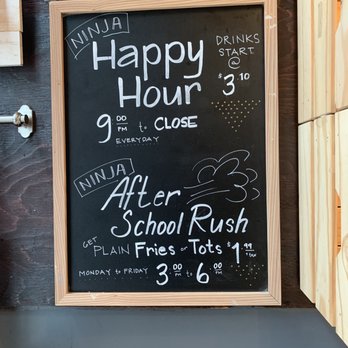 NINJA
Happy
Hour
DRINKS
START
@
$3.10
9:00 PM to CLOSE
EVERYDAY
NINJA
After
School Rush
GET PLAIN Fries or Tots $1.99
MONDAY to FRIDAY 3:00 PM to 6:00 PM